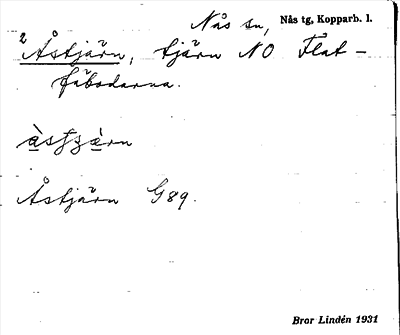 Nås sn, Nås tg, Kopparb. l.
2 Åstjärn, tjärn NO Flat-
fäbodarna.
Åstjärn G89.
Bror Lindén 1931